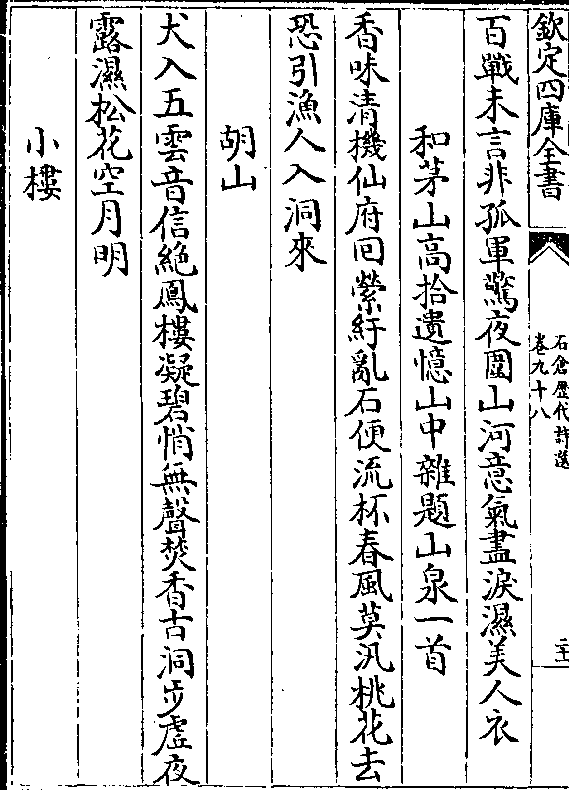 欽定四庫全書
石倉歷代詩選
卷九十八
二十
百戰未言非孤軍驚夜圍山河意氣盡淚濕美人衣
和茅山高拾遺憶山中雜題山泉一首
香味清機仙府回縈紆亂石便流杯春風莫汎桃花去
恐引漁人入洞來
胡山
犬入五雲音信絶鳳樓凝碧悄無聲焚香古洞步虛夜
露濕松花空月明
小樓